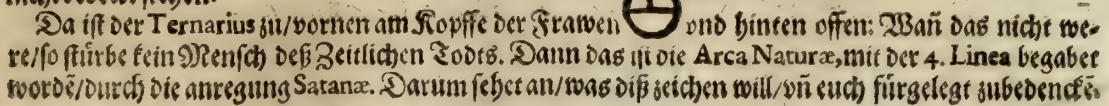 Da iſt der Ternarius zu/vornen am Kopffe der Frawen vnd hinten offen: Wañ das nicht we-
re/ſo ſtürbe kein Menſch deß Zeitlichen Todts. Dann das iſt die Arca Naturæ, mit der 4. Linea begabet
wordē/durch die anregung Satanæ. Darum ſehet an/was diß zeichen will/vñ euch fürgelegt zubedenckē.